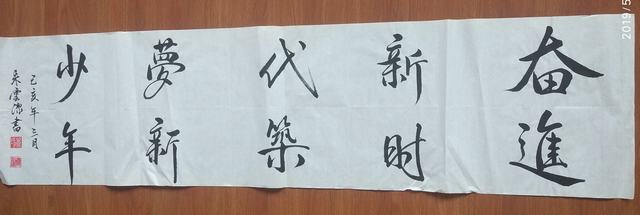 奋進
新时
代築
夢新
少年
己亥年三月
書
2019/5